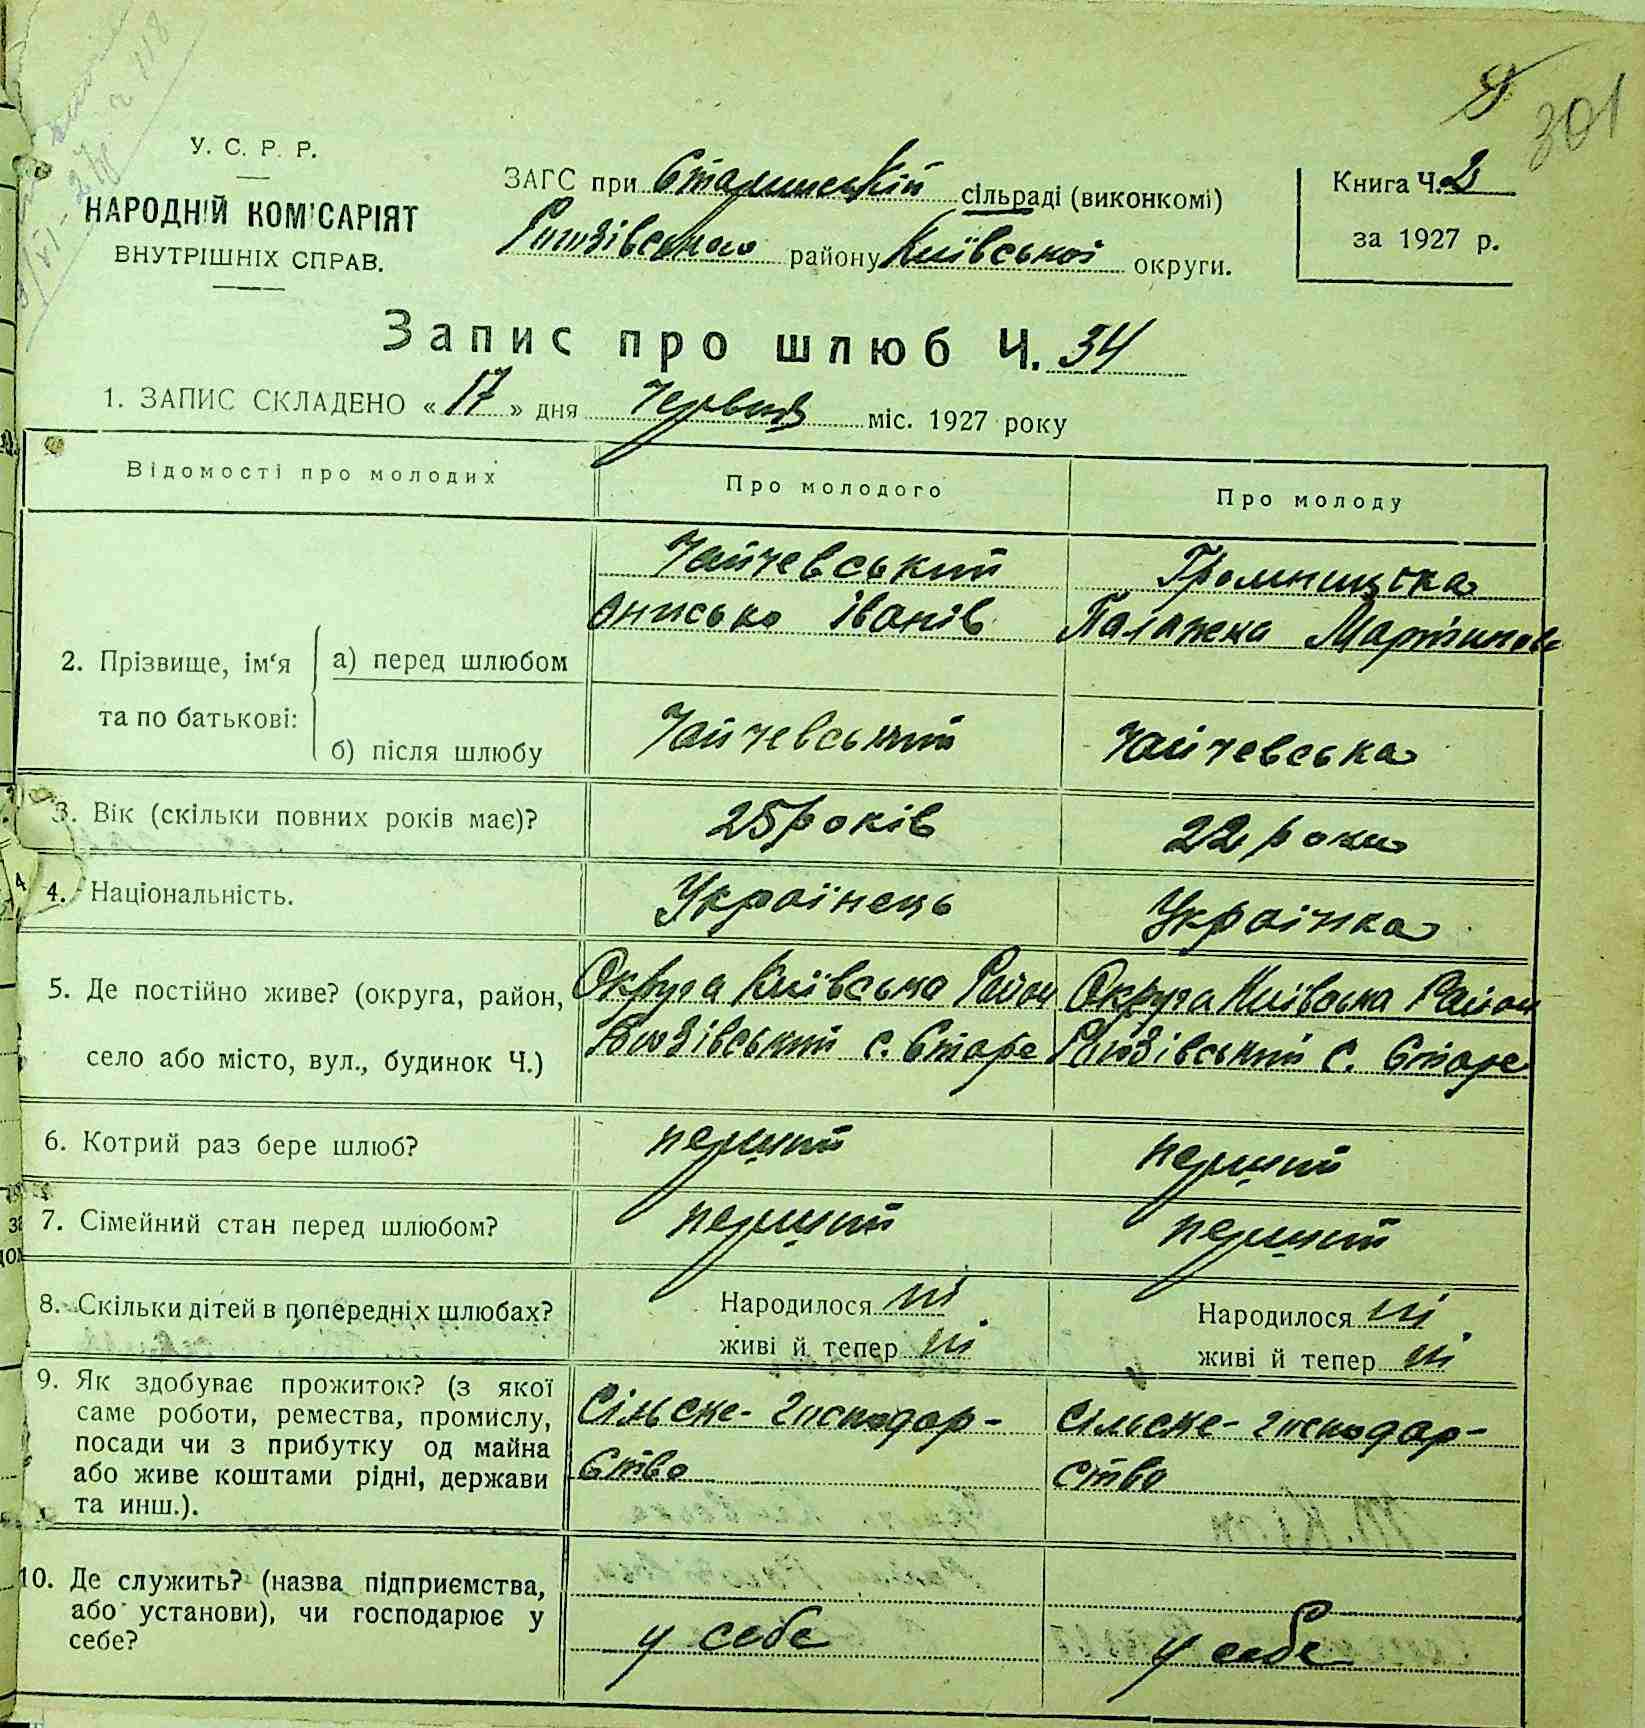 301
У. С. Р. Р.
НАРОДНІЙ КОМІСАРІЯТ
ВНУТРІШНІХ СПРАВ.
ЗАГС при Старинській сільраді (виконкомі)
району Київської округи.
Книга Ч. 2
за 1927 р.
Запис про шлюб Ч. 34
1. ЗАПИС СКЛАДЕНО « 17 » дня Червця міс. 1927 року
Відомості про молодих
Про молодого
Про молоду
2. Прізвище, ім‘я та по батькові:
а) перед шлюбом
Чайчевський
Онисько Іванів
Громницька
Палажка Мартинов
б) після шлюбу
Чайчевський
Чайчевська
3. Вік (скільки повних років має)?
25 років
22 роки
4. Національність.
Українець
Українка
5. Де постійно живе? (округа, район,
село або місто, вул., будинок Ч.)
Округа Київська Район
с. Старе
Округа Київська Район
с. Старе
6. Котрий раз бере шлюб?
перший
перший
7. Сімейний стан перед шлюбом?
перший
перший
8. Скільки дітей в попередніх шлюбах?
Народилося ні
живі й тепер ні
Народилося ні
живі й тепер ні
9. Як здобуває прожиток? (з якої
саме роботи, ремества, промислу,
посади чи з прибутку од майна
або живе коштами рідні, держави
та инш.).
Сільске-господар-
ство
Сільске-господар-
ство
10. Де служить? (назва підприємства,
або установи), чи господарює у
себе?
у себе
у себе